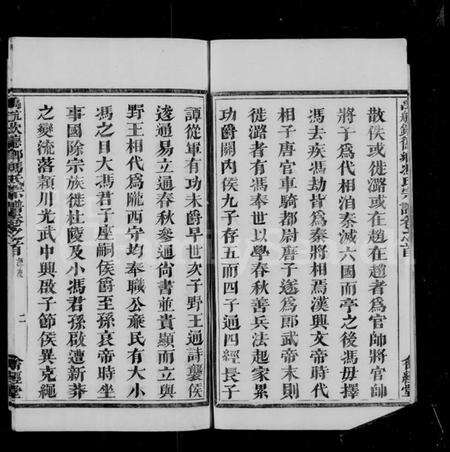 散侯或徙潞或在趙在趙者爲官帥將官帥
將子爲代相洎秦滅六國而亭之後馮毋擇
馮去疾馮劫皆爲秦將相焉漢興文帝時代
相子唐官車騎都尉唐子遂爲郎武帝末則
徙潞者有馮奉世以學春秋善兵法起家累
功爵關內侯九子存五而四子通四經長子
譚從軍有功未爵早世次子野王通詩襲侯
逡通易立通春秋參通尚書並貴顯而立與
野王相代爲隴西守均奉職公廉民有大小
馮之目大馮君子座嗣侯爵至孫衰帝時坐
事國除宗族徙杜陵及小馮君孫啟遭新莽
之變流落潁川光武中興啟子節侯異克繩
馮氏宗譜卷之首
二
會經堂
會經堂